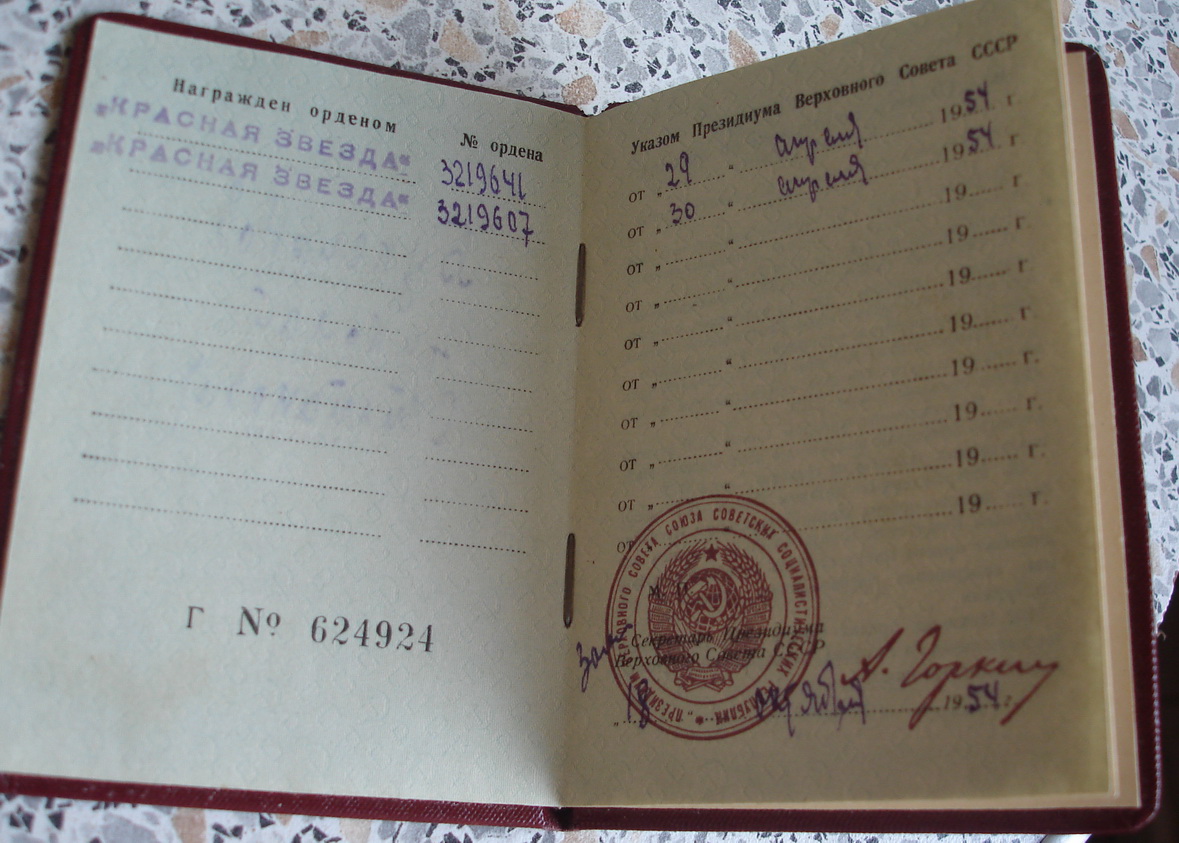 Награжден орденом
№ ордена
„КРАСНАЯ ЗВЕЗДА“ 3219641
„КРАСНАЯ ЗВЕЗДА“ 3219607
Г № 624924
Указом Президиума Верховного Совета СССР
от „ 29 “ апреля 1954 г
от „ 30 “ апреля 1954 г
от „ “ 19 г
от „ “ 19 г.
от „ “ 19 г
от „ “ 19 г.
от „ “ 19 г.
от „ “ 19 г.
от „ “ 19 г.
от „ “ 19 г.
ПРЕЗИДИУМ ВЕРХОВНОГО СОВЕТА СОЮЗА СОВЕТСКИХ СОЦИАЛИСТИЧЕСКИХ РЕСПУБЛИК
Секретарь Президиума
Верховного Совета СССР
А. Горкин
„ 18 1954 г